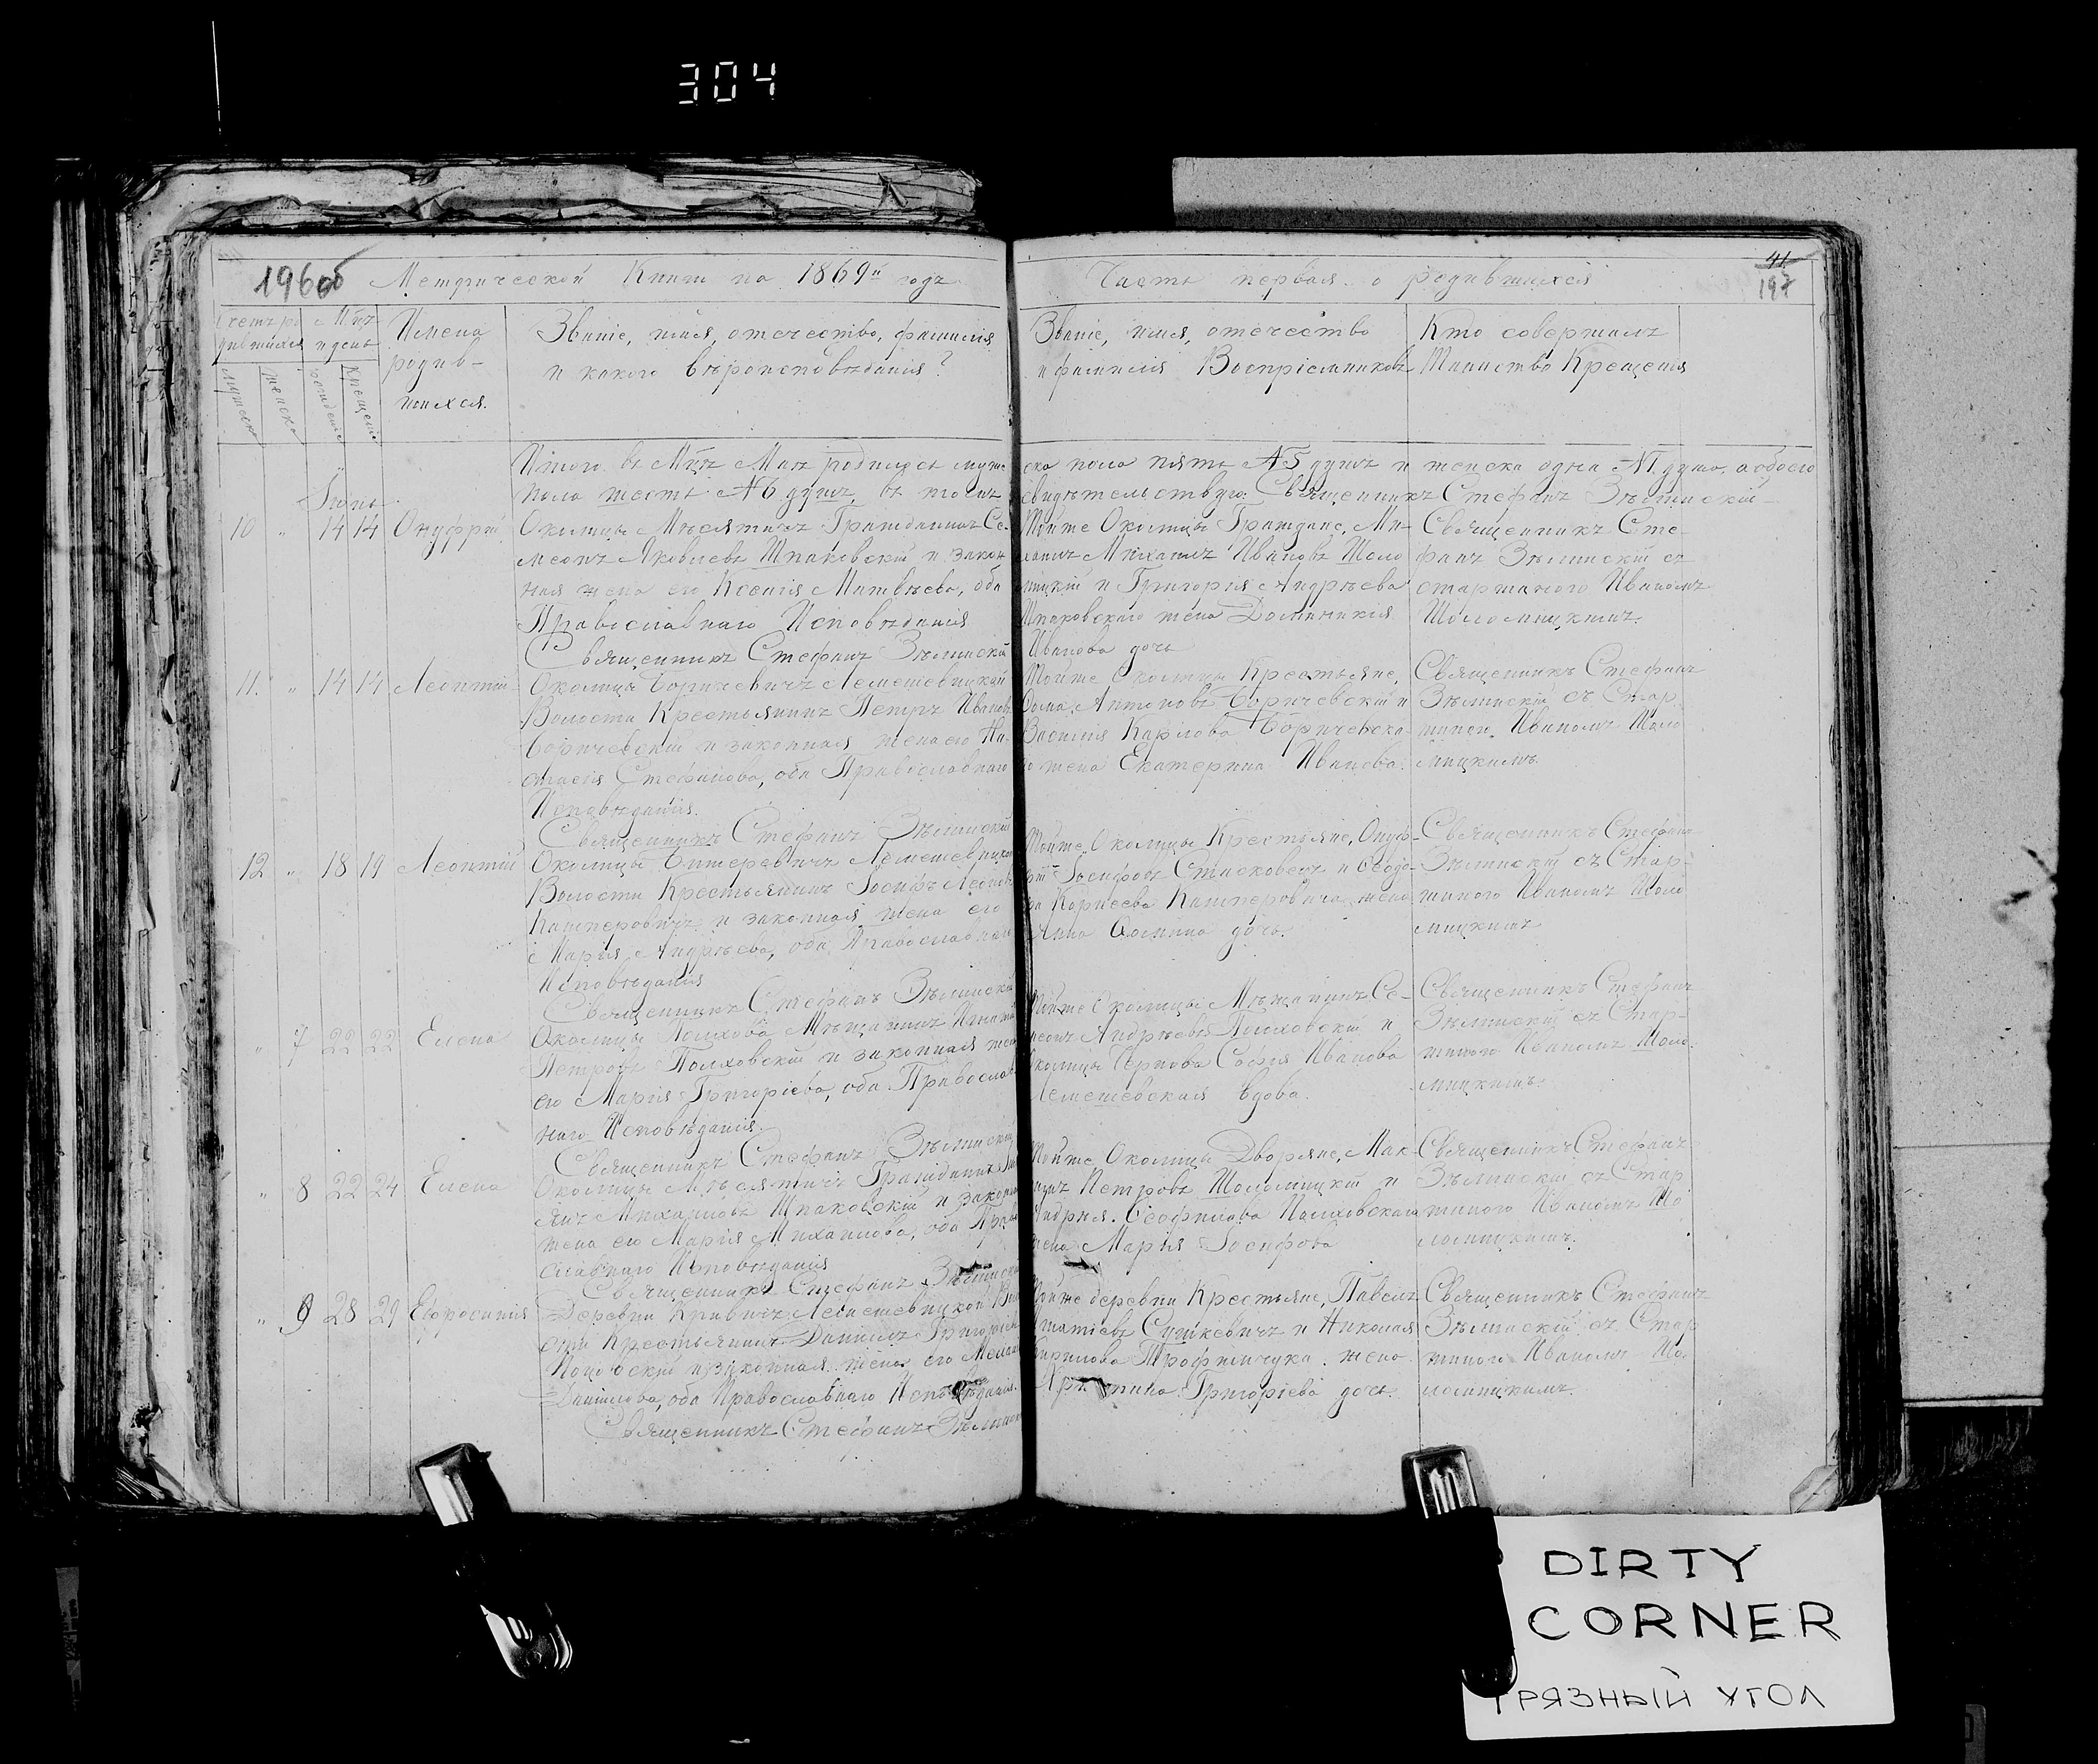 304
196об Метрической Книги на 1869й годъ
Часть первая о родившихся
41
197
Имена
родив-
шихся.
Званіе, имя, отечество, фамилія
и какого вѣроисповѣданія?
Званіе, имя, отечество
и фамилія Воспріемниковъ
Кто совершалъ
Таинство Крещенія
Итого въ Мцѣ Маѣ родилось муже
ска пола пять №5 душъ и женска одна №1 душа, а обоего
пола шесть №6 душъ, въ томъ
свидѣтельствую: Священникъ Стефанъ Зѣлинскій
Іюнь
10 " 14 14 Онуфрій
Околицы Мѣсятичъ Гражданинъ Се-
меонъ Яковлевъ Шпаковскій и закон
ная жена его Ксенія Матвѣева, оба
Православнаго Исповѣданія
Священникъ Стефанъ Зѣлинскій
Тойже Околицы Граждане, Ми-
хаилъ Иванов Шоло
мицкій и Григорія Андрѣева
Шпаковскаго жена Доминикія
Иванова дочь
Священникъ Сте-
фанъ Зѣлинскій съ
старшиного Иваномъ
Шоломицкимъ.
11. " 14 14 Леонтій
Околицы Боричевичъ Лемешевицкой
Волости Крестьянинъ Петръ Ивановъ
Боричевскій и законная жена его На-
стасія Стефанова, оба Православнаго
Исповѣданія.
Священникъ Стефанъ Зѣлинскій
Тойже Околицы Крестьяне,
Антоновъ Боричевскій и
Василія Карпова Боричевска-
го жена Екатерина Иванова.
Священникъ Стефанъ
Зѣлинскій съ Стар
шиною Иваномъ Шоло
мицкимъ.
12 " 18 19 Леонтій
Околицы Лемешевицкой
Волости Крестьянинъ Іосифъ
Кашперовичъ и законная жена его
Марія Андрѣева, оба Православнаго
Исповѣданія
Священникъ Стефанъ Зѣлинскій
Тойже Околицы Крестьяне, Онуф-
рій Іосифовъ и Ѳеодо-
ра Корнеева Кашперовича жена
Анна дочь.
Священникъ Стефанъ
Зѣлинскій съ Стар-
шиного Иваномъ Шоло
мицкимъ
" 7 22 22 Елена
Околицы Полхова Мѣщанинъ Игнатій
Петровъ Полховскій и законная жена
его Марія Григоріева, оба Православ
наго Исповѣданія.
Священникъ Стефанъ Зѣлинскій
Тойже Околицы Мѣщанинъ Се-
меонъ Андрѣевъ Полховскій и
околицы Чернова Софія Иванова
Лемешевская вдова.
Священникъ Стефанъ
Зѣлинскій съ Стар-
шиного Иваномъ Шоло-
мицкимъ.
" 8 22 24 Елена
Околицы Мѣсятичъ Гражданинъ
Михаиловъ Шпаковскій и законная
жена его Марія Михаилова, оба Право
славнаго Исповѣданія
Священникъ Стефанъ Зѣлинскій
Тойже Околицы Дворяне, Мак-
симъ Петровъ Шоломицкій и
Андрея Ѳеофилова Полховскаго
жена Марія Іосифова
Священникъ Стефанъ
Зѣлинскій съ Стар
шиного Иваномъ Шо
ломицкимъ.
" 9 28 29 Евфросинія
Деревни Кривичъ Лемешевицкой Воло
сти Крестьянинъ Даніилъ Григоріевъ
и законная жена его
Даниилова, оба Православнаго Исповѣданія.
Священникъ Стефанъ Зѣлинскій
Тойже деревни Крестьяне, Павелъ
Игнатіевъ Сушкевичъ и Николая
Кирилова Трофимчука жена
Христина Григоріева дочь.
Священникъ Стефанъ
Зѣлинскій съ Стар
шиного Иваномъ Шо-
ломицкимъ.
DIRTY
CORNER
ГРЯЗНЫЙ УГОЛ